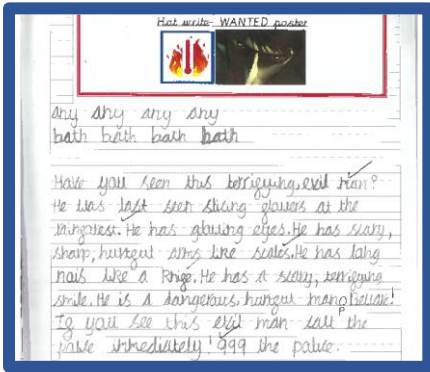 Hot write- WANTED poster
any any any any
bath bath bath bath
Have you seen this terrifying, evil man?
He was last seen stealing at the
He has glowing eyes. He has scary,
sharp, arms like scales. He has long
nails like a knife. He has a scary, terrifying
smile. He is a dangerous, man beware!
If you see this evil man call the
police immediately! 999 the police.